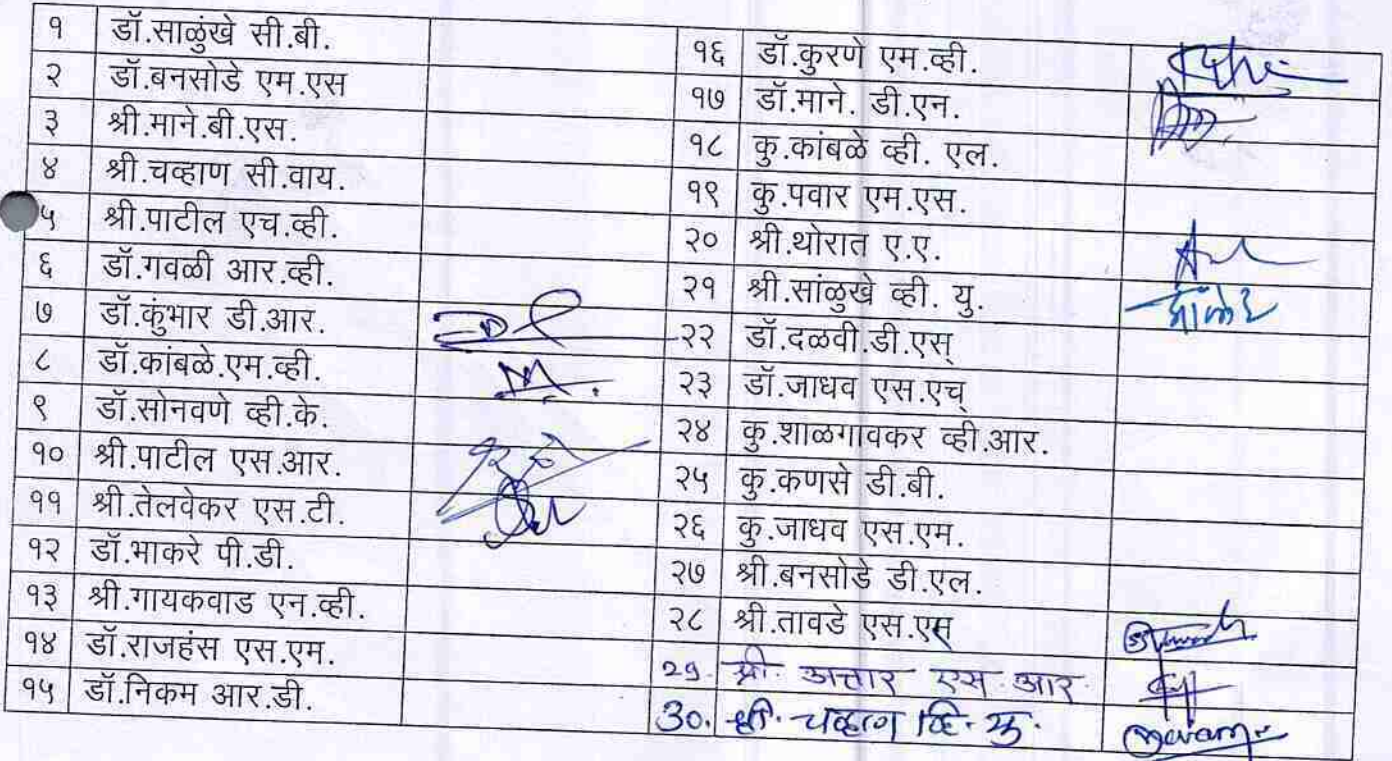 १ डॉ.साळुंखे सी.बी.
२ डॉ.बनसोडे एम.एस
३ श्री.माने.बी.एस.
४ श्री.चव्हाण सी.वाय.
५ श्री.पाटील एच.व्ही.
६ डॉ.गवळी आर.व्ही.
७ डॉ.कुंभार डी.आर.
८ डॉ.कांबळे.एम.व्ही.
९ डॉ.सोनवणे व्ही.के.
१० श्री.पाटील एस.आर.
११ श्री.तेलवेकर एस.टी.
१२ डॉ.भाकरे पी.डी.
१३ श्री.गायकवाड एन.व्ही.
१४ डॉ.राजहंस एस.एम.
१५ डॉ.निकम आर.डी.
१६ डॉ.कुरणे एम.व्ही.
१७ डॉ.माने. डी.एन.
१८ कु.कांबळे व्ही. एल.
१९ कु.पवार एम.एस.
२० श्री.थोरात ए.ए.
२१ श्री.सांळुखे व्ही. यु.
२२ डॉ.दळवी.डी.एस्
२३ डॉ.जाधव एस.एच्
२४ कु.शाळगावकर व्ही.आर.
२५ कु.कणसे डी.बी.
२६ कु.जाधव एस.एम.
२७ श्री.बनसोडे डी.एल.
२८ श्री.तावडे एस.एस
२९. श्री. अत्तार एस. आर.
३०. श्री. चव्हाण व्हि. यु.